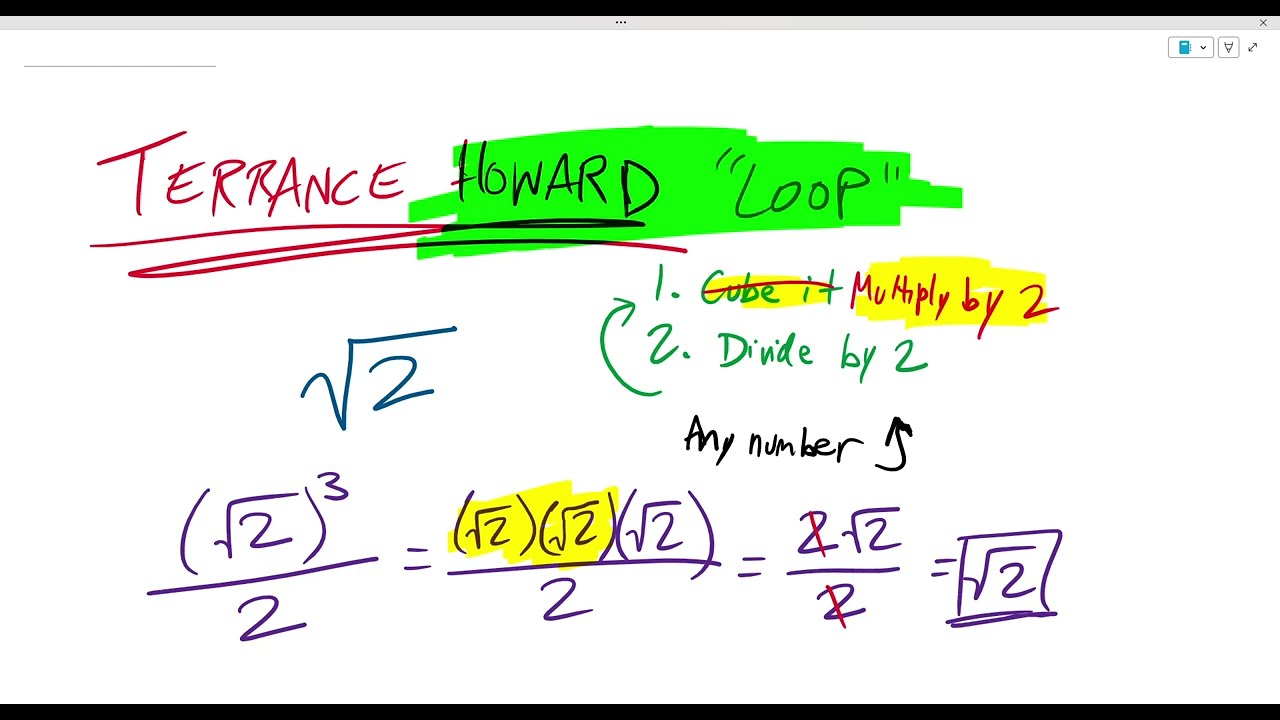 TERRANCE HOWARD "LOOP"
1. Cube it Multiply by 2
2. Divide by 2
√2
Any number
(√2)³/2 = (√2)(√2)(√2)/2 = 2√2/2 = √2